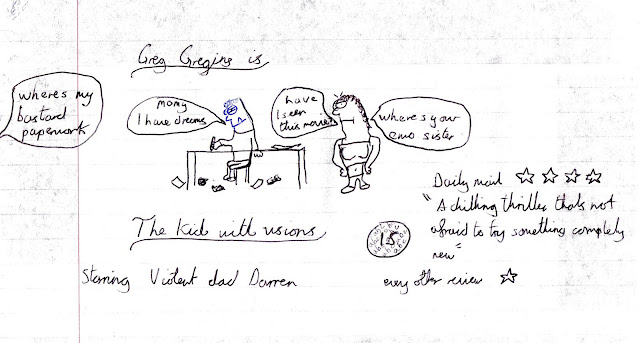 Greg Gregins is
where's my
bastard
paperwork
momy
I have dreams
have
I seen
this movie
where's your
emo sister
The Kid with visions
Starring Violent dad Darren
15
Daily mail
"A chilling thriller thats not
afraid to try something completely
new"
every other review